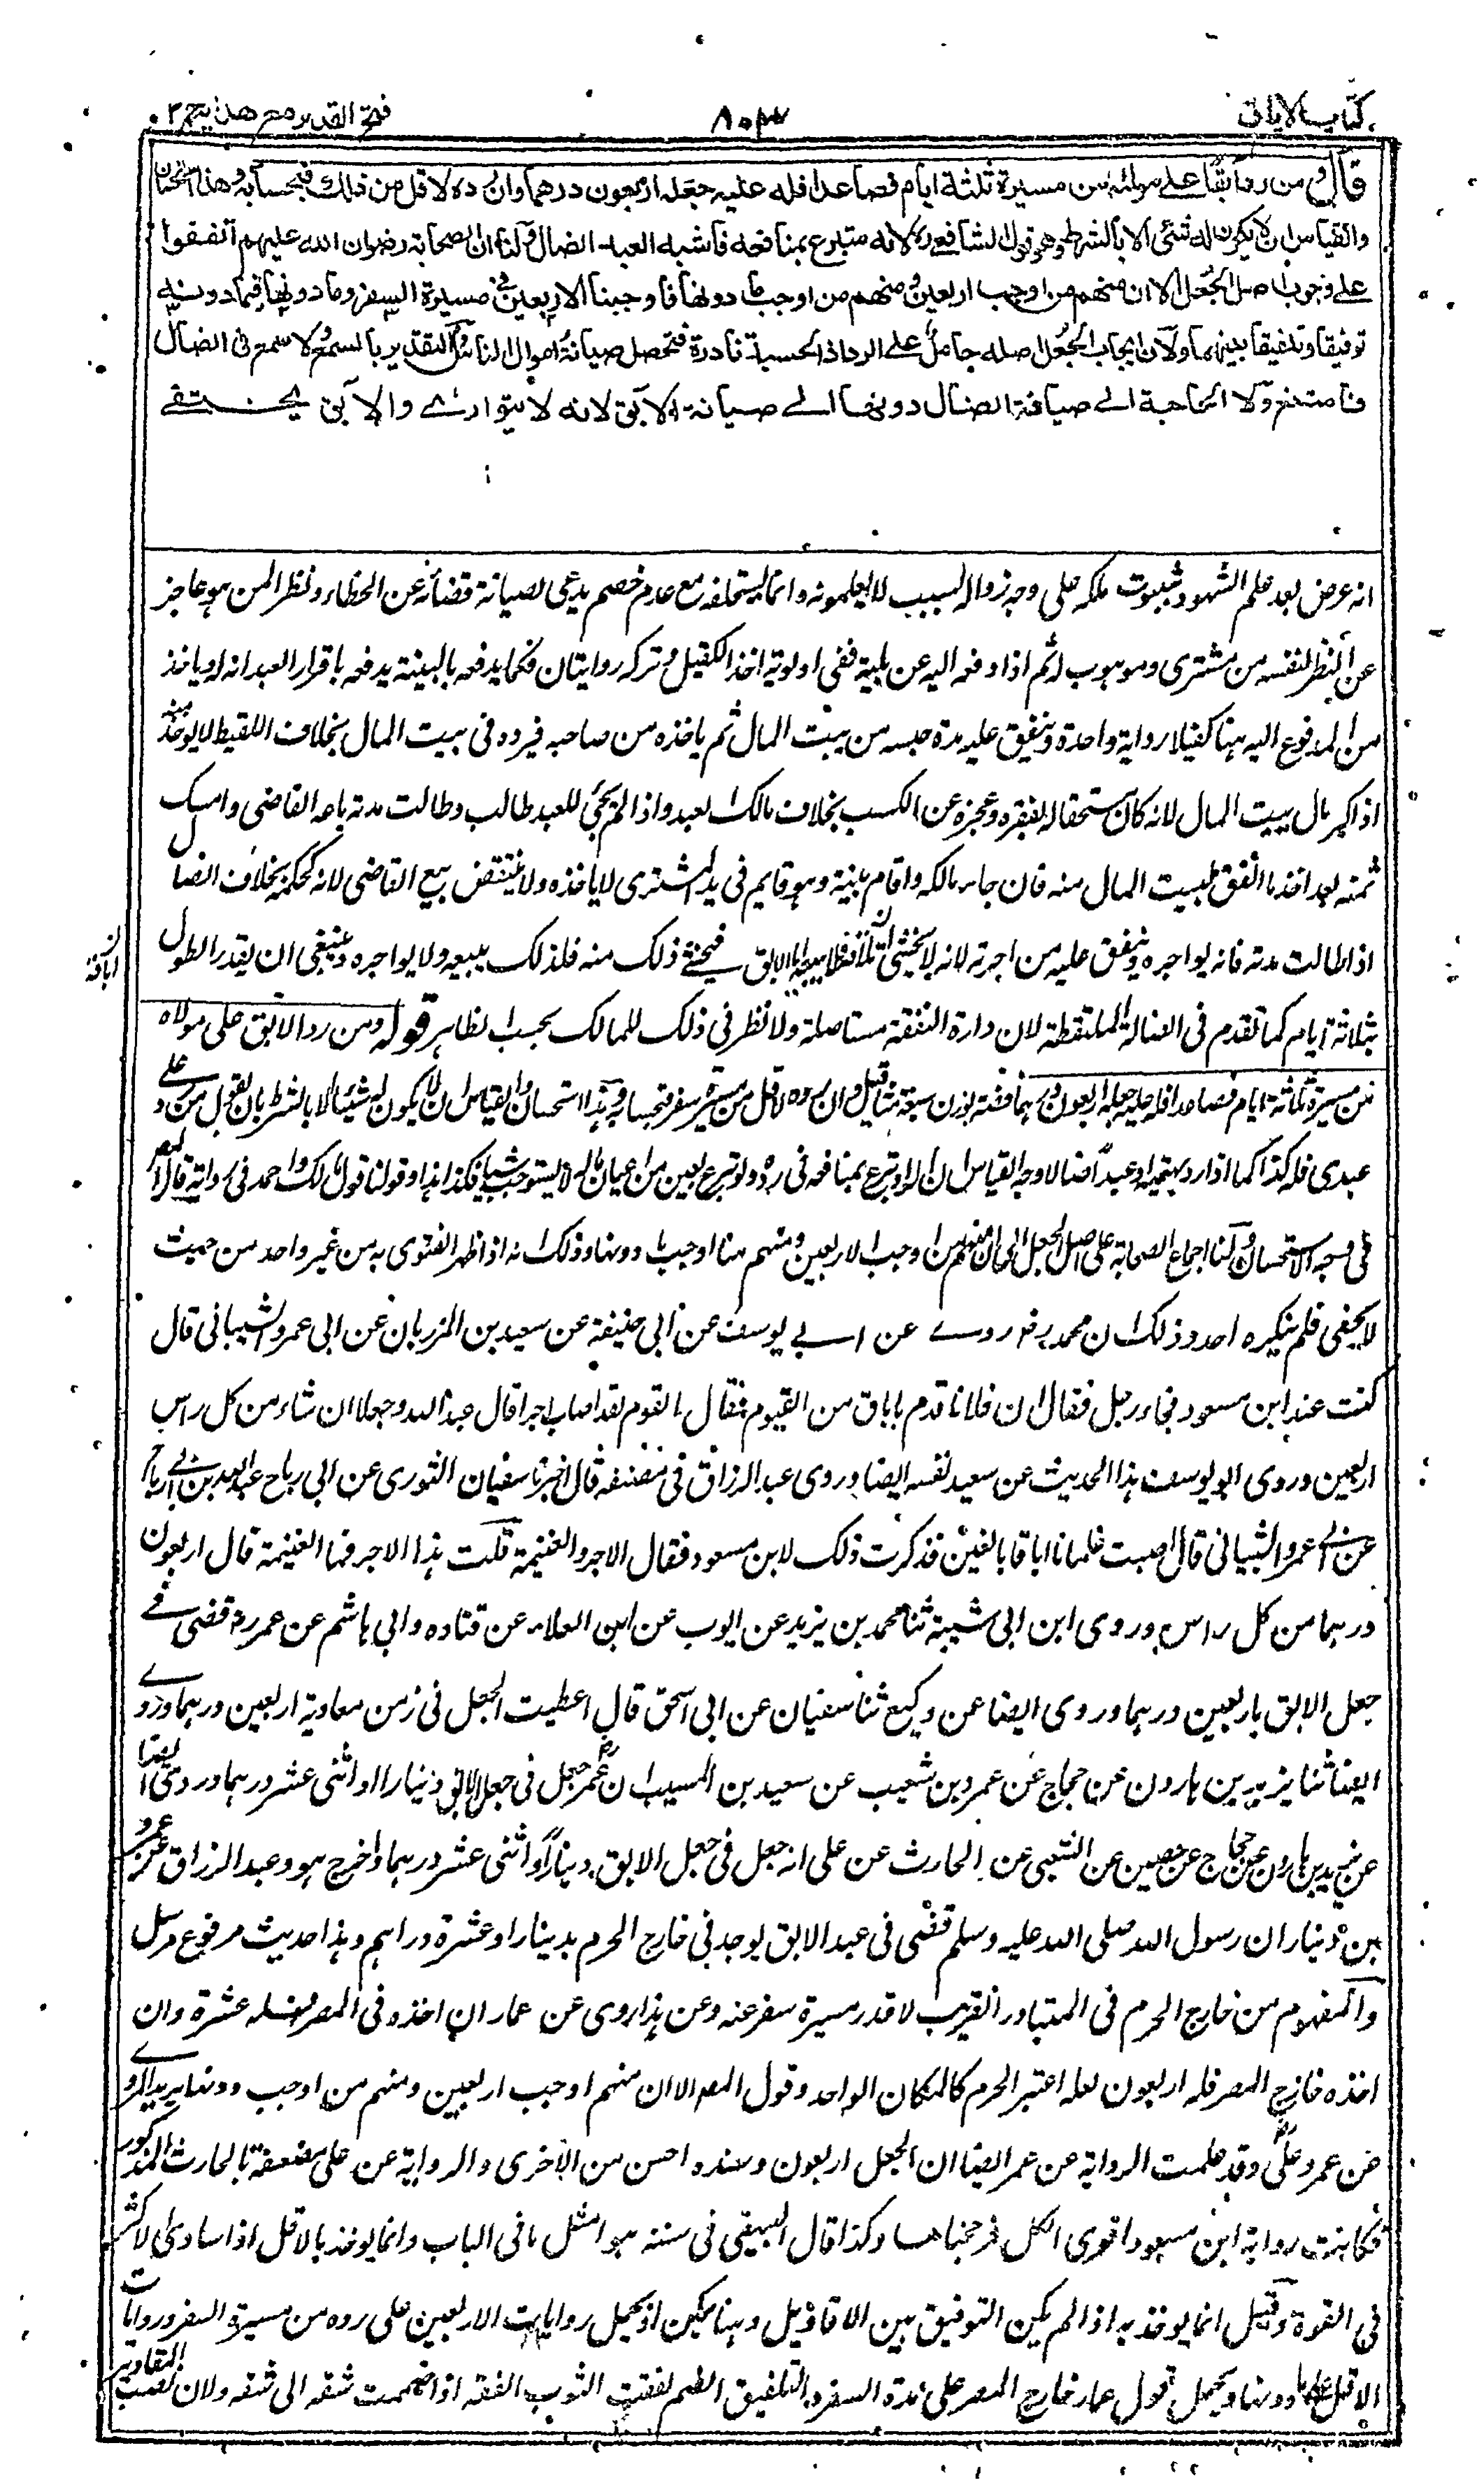 كتاب الاباق
٨٠٣
فتح القدير مع هدايه ج ٢
قال ومن رد آبقا على مولاه من مسيرة ثلثة ايام فصاعدا فله عليه جعله اربعون درهما وان رده لاقل من ذلك فبحسابه وهذا استحسان
والقياس ان لا يكون له شئ الا بالشرط وهو قول الشافعي رح لانه متبرع بمنافعه فاشبه العبد الضال ولنا ان الصحابة رضوان الله عليهم اتفقوا
على وجوب اصل الجعل الا ان منهم من اوجب اربعين ومنهم من اوجب ما دونها فاوجبنا الاربعين في مسيرة السفر وما دونها فيما دونه
توفيقا وتلفيقا بينهما ولان ايجاب الجعل اصله حامل على الرد اذ الحسبة نادرة فتحصل صيانة اموال الناس والتقدير بالسمع ولا سمع في الضال
فامتنع ولا الحاجة الى صيانة الضال دونها الى صيانة الآبق لانه لا يتوارى والآبق يختفي
انه عرض بعد علم الشهود بثبوت ملكه على وجه زواله بسبب لا يعلمونه وانما يستحلفه مع عدم خصم يدعى لصيانة قضائه عن الخطاء ونظر المن هو عاجز
عن النظر لنفسه من مشترى وموهوب له ثم اذا دفعه اليه عن بينة ففي اولوية اخذ الكفيل وتركه روايتان فكما يدفعه بالبينة يدفعه باقرار العبد انه له وياخذ
من المدفوع اليه هنا كفيلا رواية واحدة وينفق عليه مدة حبسه من بيت المال ثم ياخذه من صاحبه فيرده فى بيت المال بخلاف اللقيط لا يوخذ منه
اذا كبر مال بيت المال لانه كان مستحقا له لفقره وعجزه عن الكسب بخلاف مالك العبد واذا لم يجئ للعبد طالب وطالت مدته باعه القاضى وامسك
ثمنه بعد اخذ ما انفق لبيت المال منه فان جاء مالكه واقام بينة وهو قايم فى يد المشترى لا ياخذه ولا ينتقض بيع القاضى لانه كحكمه بخلاف الضال
اذا طالت مدته فانه يواجره وينفق عليه من اجرته لانه لا يخشى اباقه فلا يبيعه اما الابق فيخشى ذلك منه فلذلك يبيعه ولا يواجره وينبغى ان يقدر الطول
بثلاثة ايام كما تقدم فى الضالة الملتقطة لان دارة النفقة مستاصلة ولا نظر فى ذلك للمالك بحسب الظاهر قوله ومن رد الابق على مولاه
من مسيرة ثلثة ايام فصاعدا فله عليه جعله اربعون درهما فضة بوزن سبعة مثاقيل وان رده لاقل من مسيرة سفر فبحسابه وهذا استحسان والقياس ان لا يكون له شئ الا بالشرط بان يقول من رد على
عبدى فله كذا كما اذا رد بهيمة او عبدا ضالا وجه القياس ان الراد تبرع بمنافعه فى رده ولو تبرع بعين من اعيان ماله لا يستوجب شيئا فكذا هذا وقولنا قول مالك واحمد فى رواية قال المصر
فى وجه الاستحسان ولنا اجماع الصحابة على اصل الجعل الا ان منهم من اوجب الاربعين ومنهم من اوجب ما دونها وذلك انه اذا ظهر الفتوى به من غير واحد من حيث
لا يخفى فلم ينكره احد وذلك ان محمد رح روے عن ابے يوسف عن ابى حنيفة عن سعيد بن المرزبان عن ابى عمرو الشيبانى قال
كنت عند ابن مسعود فجاء رجل فقال ان فلانا قدم باباق من الفيوم فقال القوم لقد اصاب اجرا قال عبد الله وجعلا ان شاء من كل راس
اربعين وروى ابو يوسف هذا الحديث عن سعيد نفسه ايضا وروى عبد الرزاق فى مصنفه قال اخبرنا سفيان الثورى عن ابى رباح عبد الله بن رباح
عن ابے عمرو الشيبانى قال اصبت غلمانا اباقا بالعين فذكرت ذلك لابن مسعود فقال الاجر والغنيمة قلت هذا الاجر فما الغنيمة قال اربعون
درهما من كل راس وروى ابن ابى شيبة ثنا محمد بن يزيد عن ايوب عن ابن العلاء عن قتاده وابى هاشم عن عمر رض قضى فى
جعل الابق باربعين درهما وروى ايضا عن وكيع ثنا سفيان عن ابى اسحق قال اعطيت الجعل فى زمن معاوية اربعين درهما وروے
ايضا ثنا يزيد بن هارون عن حجاج عن عمرو بن شعيب عن سعيد بن المسيب ان عمر رض جعل فى جعل الابق دينارا او اثنى عشر درهما وروى ايضا
عن يزيد بن هارون عن حجاج عن حصين عن الشعبى عن الحارث عن على انه جعل فى جعل الابق دينارا او اثنى عشر درهما واخرج هو وعبد الرزاق عن عمرو
بن دينار ان رسول الله صلى الله عليه وسلم قضى فى عبد الابق يوجد فى خارج الحرم بدينار او عشرة دراهم وهذا حديث مرفوع مرسل
والمفهوم من خارج الحرم فى المتبادر القريب لا قدر مسيرة سفر عنه وعن هذا روى عن عمار ان اخذه فى المصر فله عشرة وان
اخذه خارج المصر فله اربعون لعله اعتبر الحرم كالمكان الواحد وقول المصر الا ان منهم اوجب اربعين ومنهم من اوجب دونها يريد المروے
عن عمر وعلى وقد علمت الرواية عن عمر ايضا ان الجعل اربعون وسنده احسن من الاخرى والرواية عن على مضعفة بالحارث المذكور
فكانت رواية ابن مسعود اقوى الكل فرجحناها وكذا قال البيهقى فى سننه هو امثل ما فى الباب وانما يوخذ بالاقل اذا ساوى الاكثر
فى القوة وقيل انما يوخذ به اذا لم يمكن التوفيق بين الاقاويل وهنا يمكن اذ يحمل روايات الاربعين على رده من مسيرة السفر وروايات
الاقل على ما دونها ويحمل قول عمار خارج المصر على مدة السفر والتلفيق الضم لفقت الثوب الفقه اذا ضممت شقه الى شقه ولان نصب المقادير
ن
اباقه